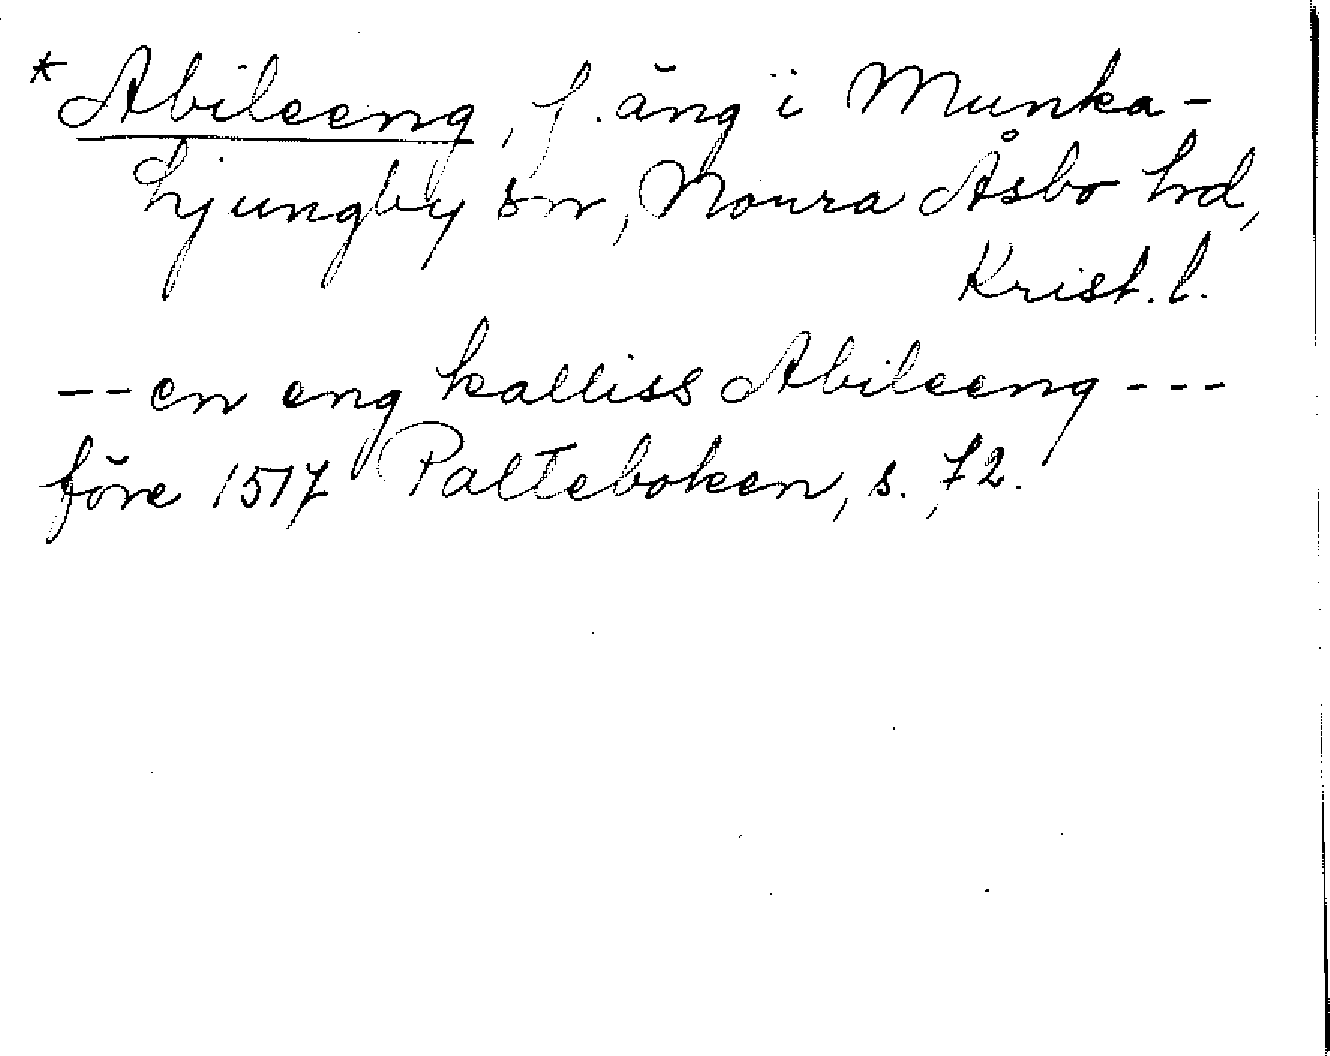 *Abileeng, f. äng i Munka-
Ljungby sn, Norra Åsbo hd,
Krist. l.
-- en eng kalliss Abileeng ---
före 1517 Palteboken, s. 72.